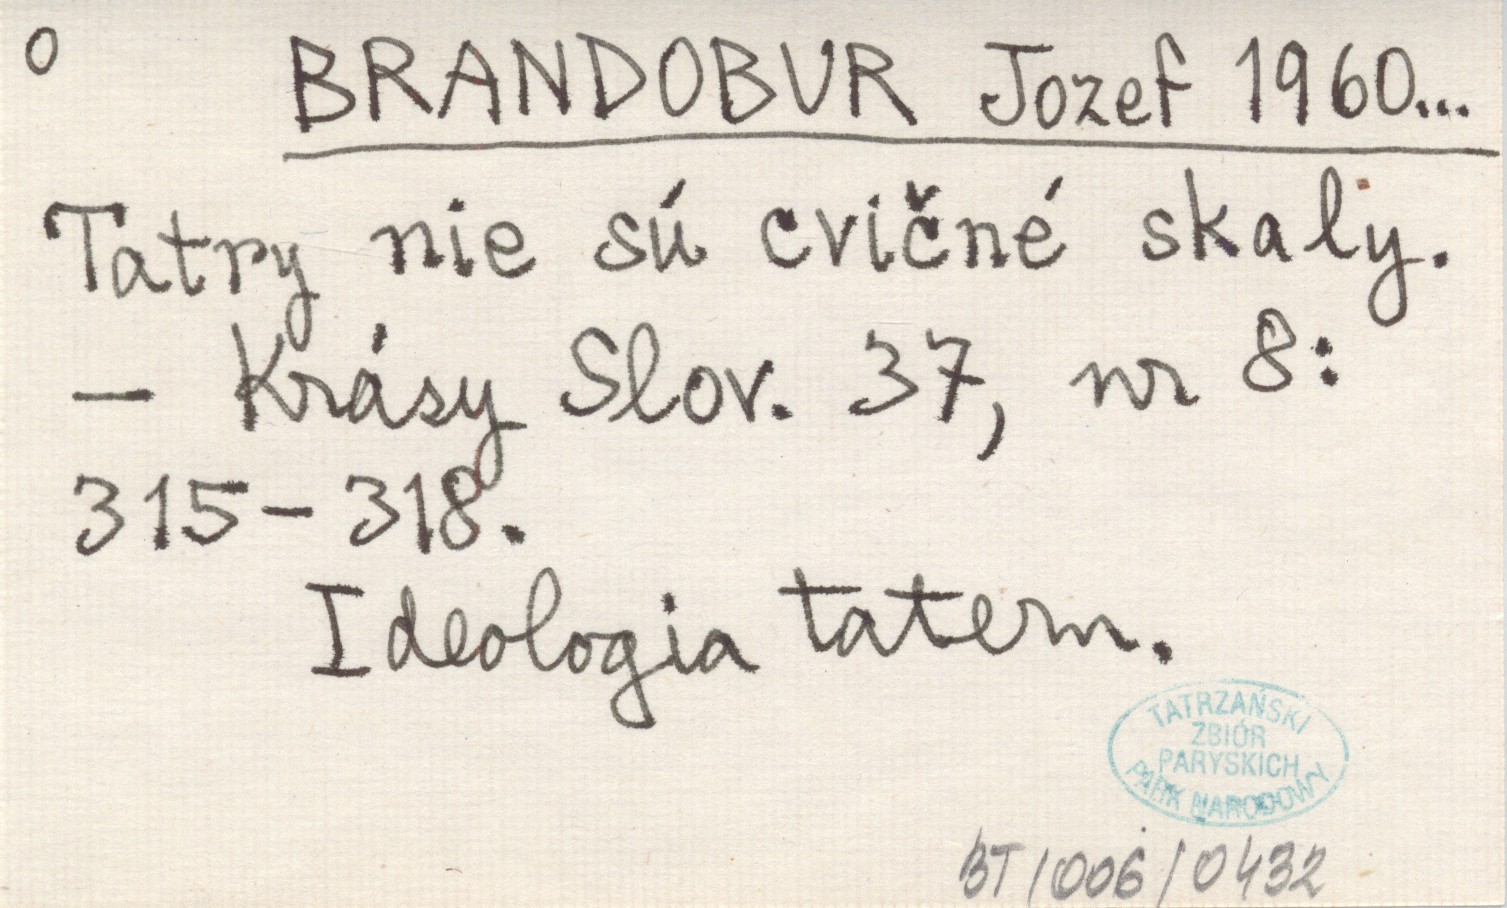 o BRANDOBUR Jozef 1960...
Tatry nie sú cvičné skaly.
- Krásy Slov. 37, nr 8:
315-318.
Ideologia tatern.
TATRZAŃSKI
ZBIÓR
PARYSKICH
PARK NARODOWY
BT/006/0432